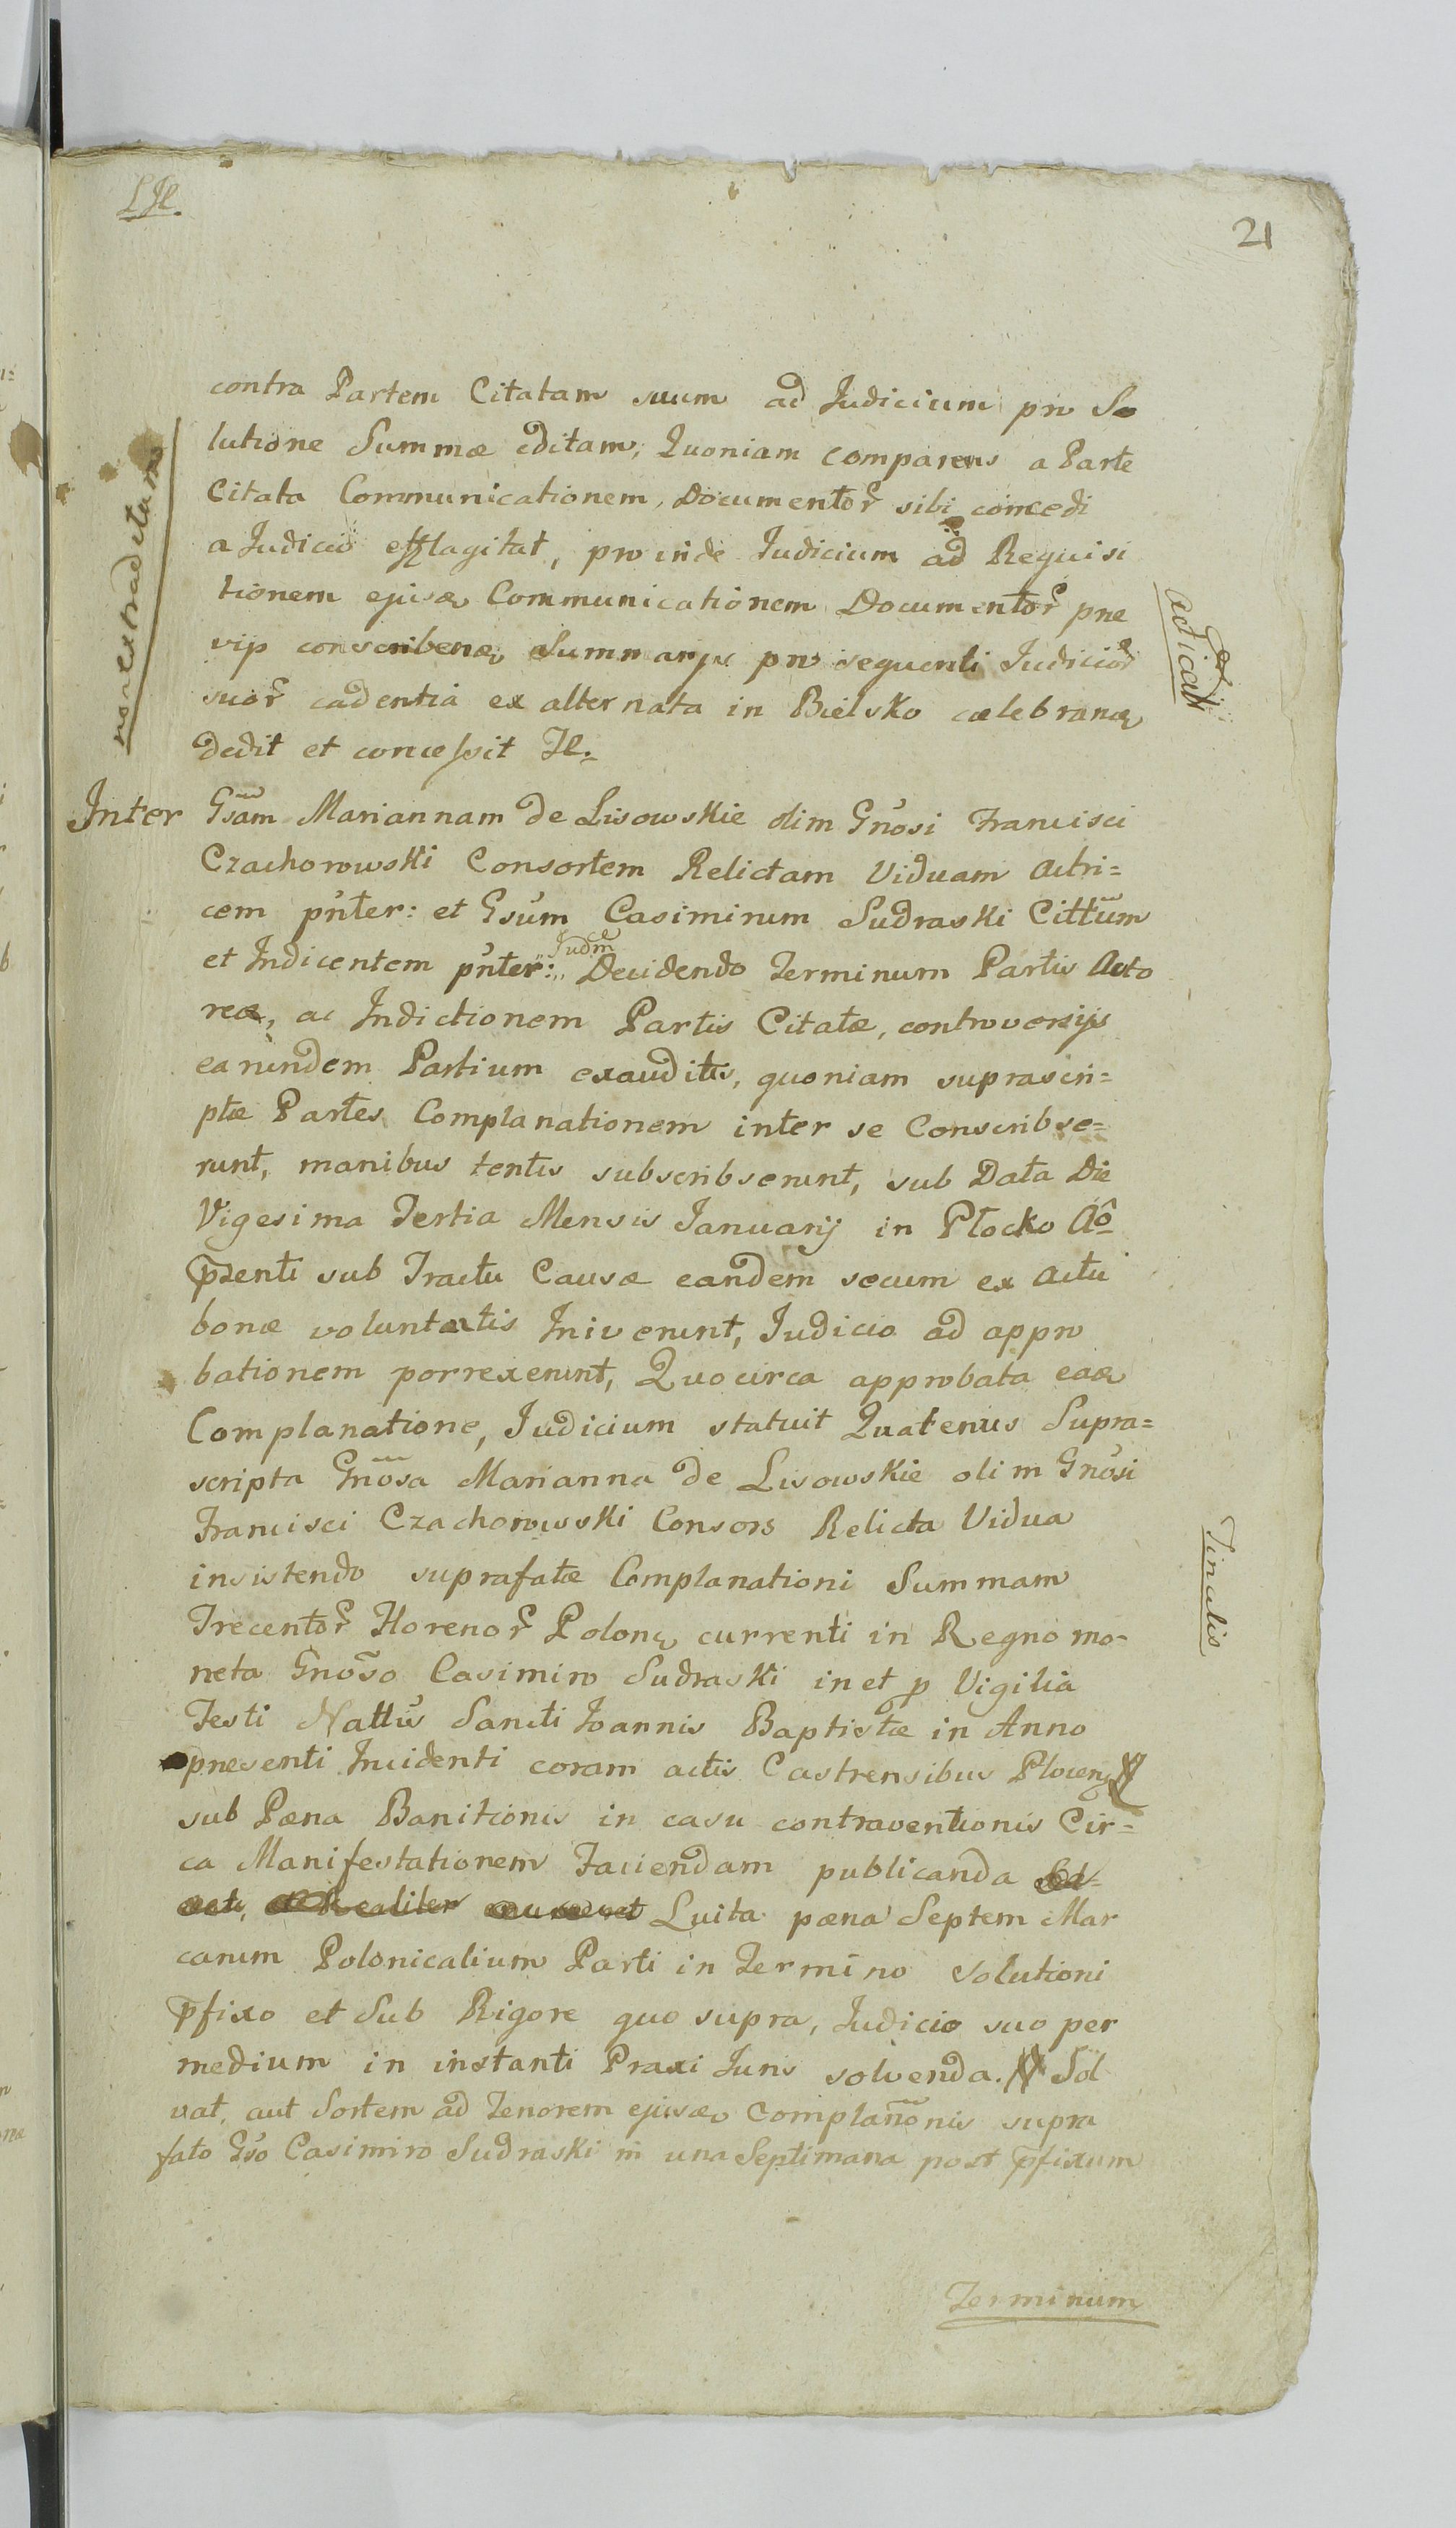 21
contra Partem Citatam suum ad Judicium pro So
lutione Summæ editam, Quoniam comparens a Parte
Citata Communicationem Documentor̃ sibi concedi
a Judicio efflagitat, pro inde Judicium ad Requisi
tionem ejusd Communicationem Documentor̃ pre
vijs conscribend Summarijs pro sequenti Judicior̃
suor̃ cadentia ex alternata in Bielsko celebrand
dedit et concessit Il:
non extraditum
Inter Gsam Mariannam de Lisowskie olim Gnosi Francisci
Czachorowski Consortem Relictam Viduam Actri=
cem pnter: et Gsum Casimirum Sudraski Cittum
et Indicentem pnter: Judm Decidendo Terminum Partis Acto
reæ, ac Indictionem Partis Citatæ, controversijs
earundem Partium exauditis, quoniam suprascri=
ptæ Partes Complanationem inter se Conscribse=
runt, manibus tentis subscribserunt, sub Data Die
Vigesima Tertia Mensis Januarij in Płocko Aô
p̃senti sub Tractu Causæ eandem secum ex Actu
bonæ voluntatis Iniverunt, Judicio ad appro
bationem porrexerunt, Quocirca approbata ead
Complanatione, Judicium statuit Quatenus Supra=
scripta Gnosa Marianna de Lisowskie olim Gnosi
Francisci Czachorowski Consors Relicta Vidua
insistendo suprafatæ Complanationi Summam
Trecentor̃ Florenor̃ Polon currenti in Regno mo-
neta Gnoso Casimiro Sudraski in et p Vigilia
Festi Nattis Sancti Joannis Baptistæ in Anno
presenti Incidenti coram actis Castrensibus Plocens
sub Pæna Banitionis in casu contraventionis Cir=
ca Manifestationem Faciendam publicanda
Luita pæna Septem Mar
carum Polonicalium Parti in Termino solutioni
p̃fixo et Sub Rigore quo supra, Judicio suo per
medium in instanti Praxi Juris solvenda. Sol
vat, aut Sortem ad Tenorem ejusd Complanonis supra
fato Gso Casimiro Sudraski in una Septimana post p̃fixum
Terminum